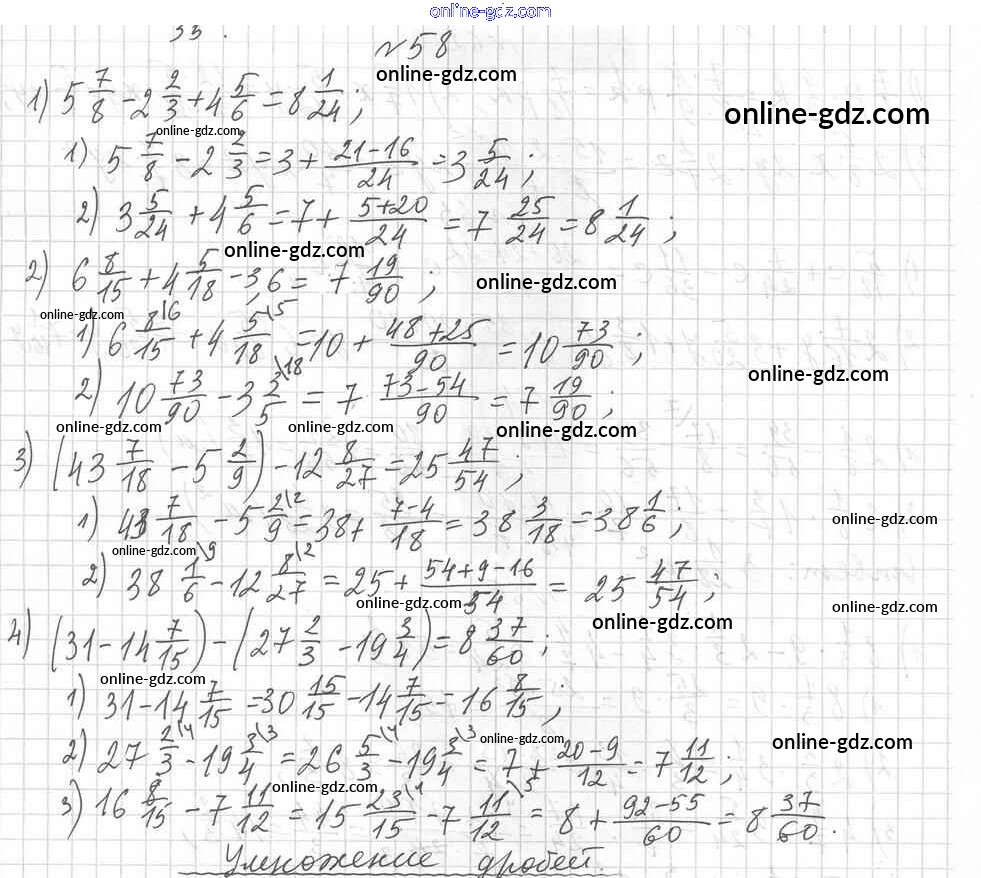 online-gdz.com
33.
№58
online-gdz.com
1) 5 7/8 - 2 2/3 + 4 5/6 = 8 1/24;
online-gdz.com
online-gdz.com
1) 5 7/8 - 2 2/3 = 3 + (21-16)/24 = 3 5/24;
2) 3 5/24 + 4 5/6 = 7 + (5+20)/24 = 7 25/24 = 8 1/24;
online-gdz.com
2) 6 8/15 + 4 5/18 - 3,6 = 7 19/90;
online-gdz.com
online-gdz.com
1) 6 8/15 \6 + 4 5/18 \5 = 10 + (48+25)/90 = 10 73/90;
online-gdz.com
2) 10 73/90 - 3 3/5 \18 = 7 (73-54)/90 = 7 19/90;
online-gdz.com online-gdz.com online-gdz.com
3) (43 7/18 - 5 2/9) - 12 8/27 = 25 47/54;
1) 43 7/18 - 5 2/9 \2 = 38 + (7-4)/18 = 38 3/18 = 38 1/6;
online-gdz.com
online-gdz.com
2) 38 1/6 \9 - 12 8/27 \2 = 25 + (54+9-16)/54 = 25 47/54;
online-gdz.com online-gdz.com
online-gdz.com
4) (31 - 14 7/15) - (27 2/3 - 19 3/4) = 8 37/60;
online-gdz.com
1) 31 - 14 7/15 = 30 15/15 - 14 7/15 = 16 8/15;
online-gdz.com online-gdz.com
2) 27 2/3 \4 - 19 3/4 \3 = 26 5/3 \4 - 19 3/4 \3 = 7 + (20-9)/12 = 7 11/12;
online-gdz.com
3) 16 8/15 - 7 11/12 = 15 23/15 \4 - 7 11/12 \5 = 8 + (92-55)/60 = 8 37/60.
Умножение дробей.